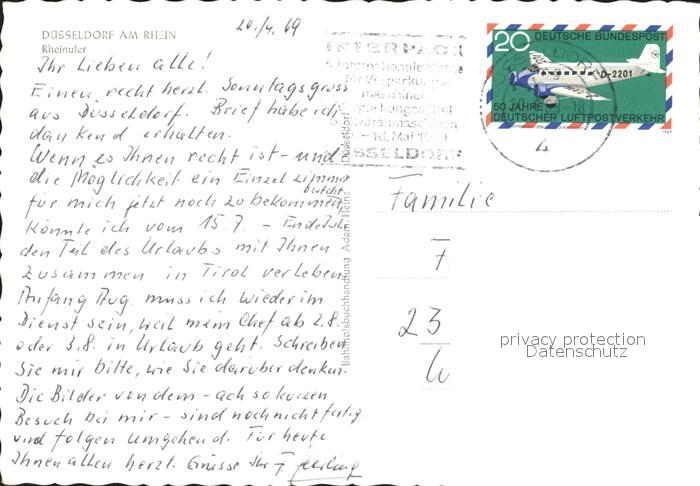 DÜSSELDORF AM RHEIN
Rheinufer
20./4. 69
Ihr Lieben alle!
Einen recht herzl. Sonntagsgruss
aus Düsseldorf. Brief habe ich
dankend erhalten.
Wenn es Ihnen recht ist - und
die Möglichkeit ein Einzelzimmer
für mich jetzt noch zu bekommen, besteht
könnte ich vom 15.7. - Ende Juli
den Teil des Urlaubs mit Ihnen
zusammen in Tirol verleben.
Anfang Aug. muss ich wieder im
Dienst sein, weil mein Chef ab 2.8.
oder 3.8. in Urlaub geht. Schreiben
Sie mir bitte, wie Sie darüber denken.
Die Bilder von dem - ach so kurzen
Besuch bei mir - sind noch nicht fertig
und folgen umgehend. Für heute
Ihnen allen herzl. Grüsse Ihr F.
Bahnhofsbuchhandlung Adam Heinz Düsseldorf
INTERPACK
Internationale Messe
für Verpackungs
Mai
DÜSSELDORF
20 DEUTSCHE BUNDESPOST
D-2201
50 JAHRE
DEUTSCHER LUFTPOSTVERKEHR
1969
Familie
F
23
W
privacy protection
Datenschutz